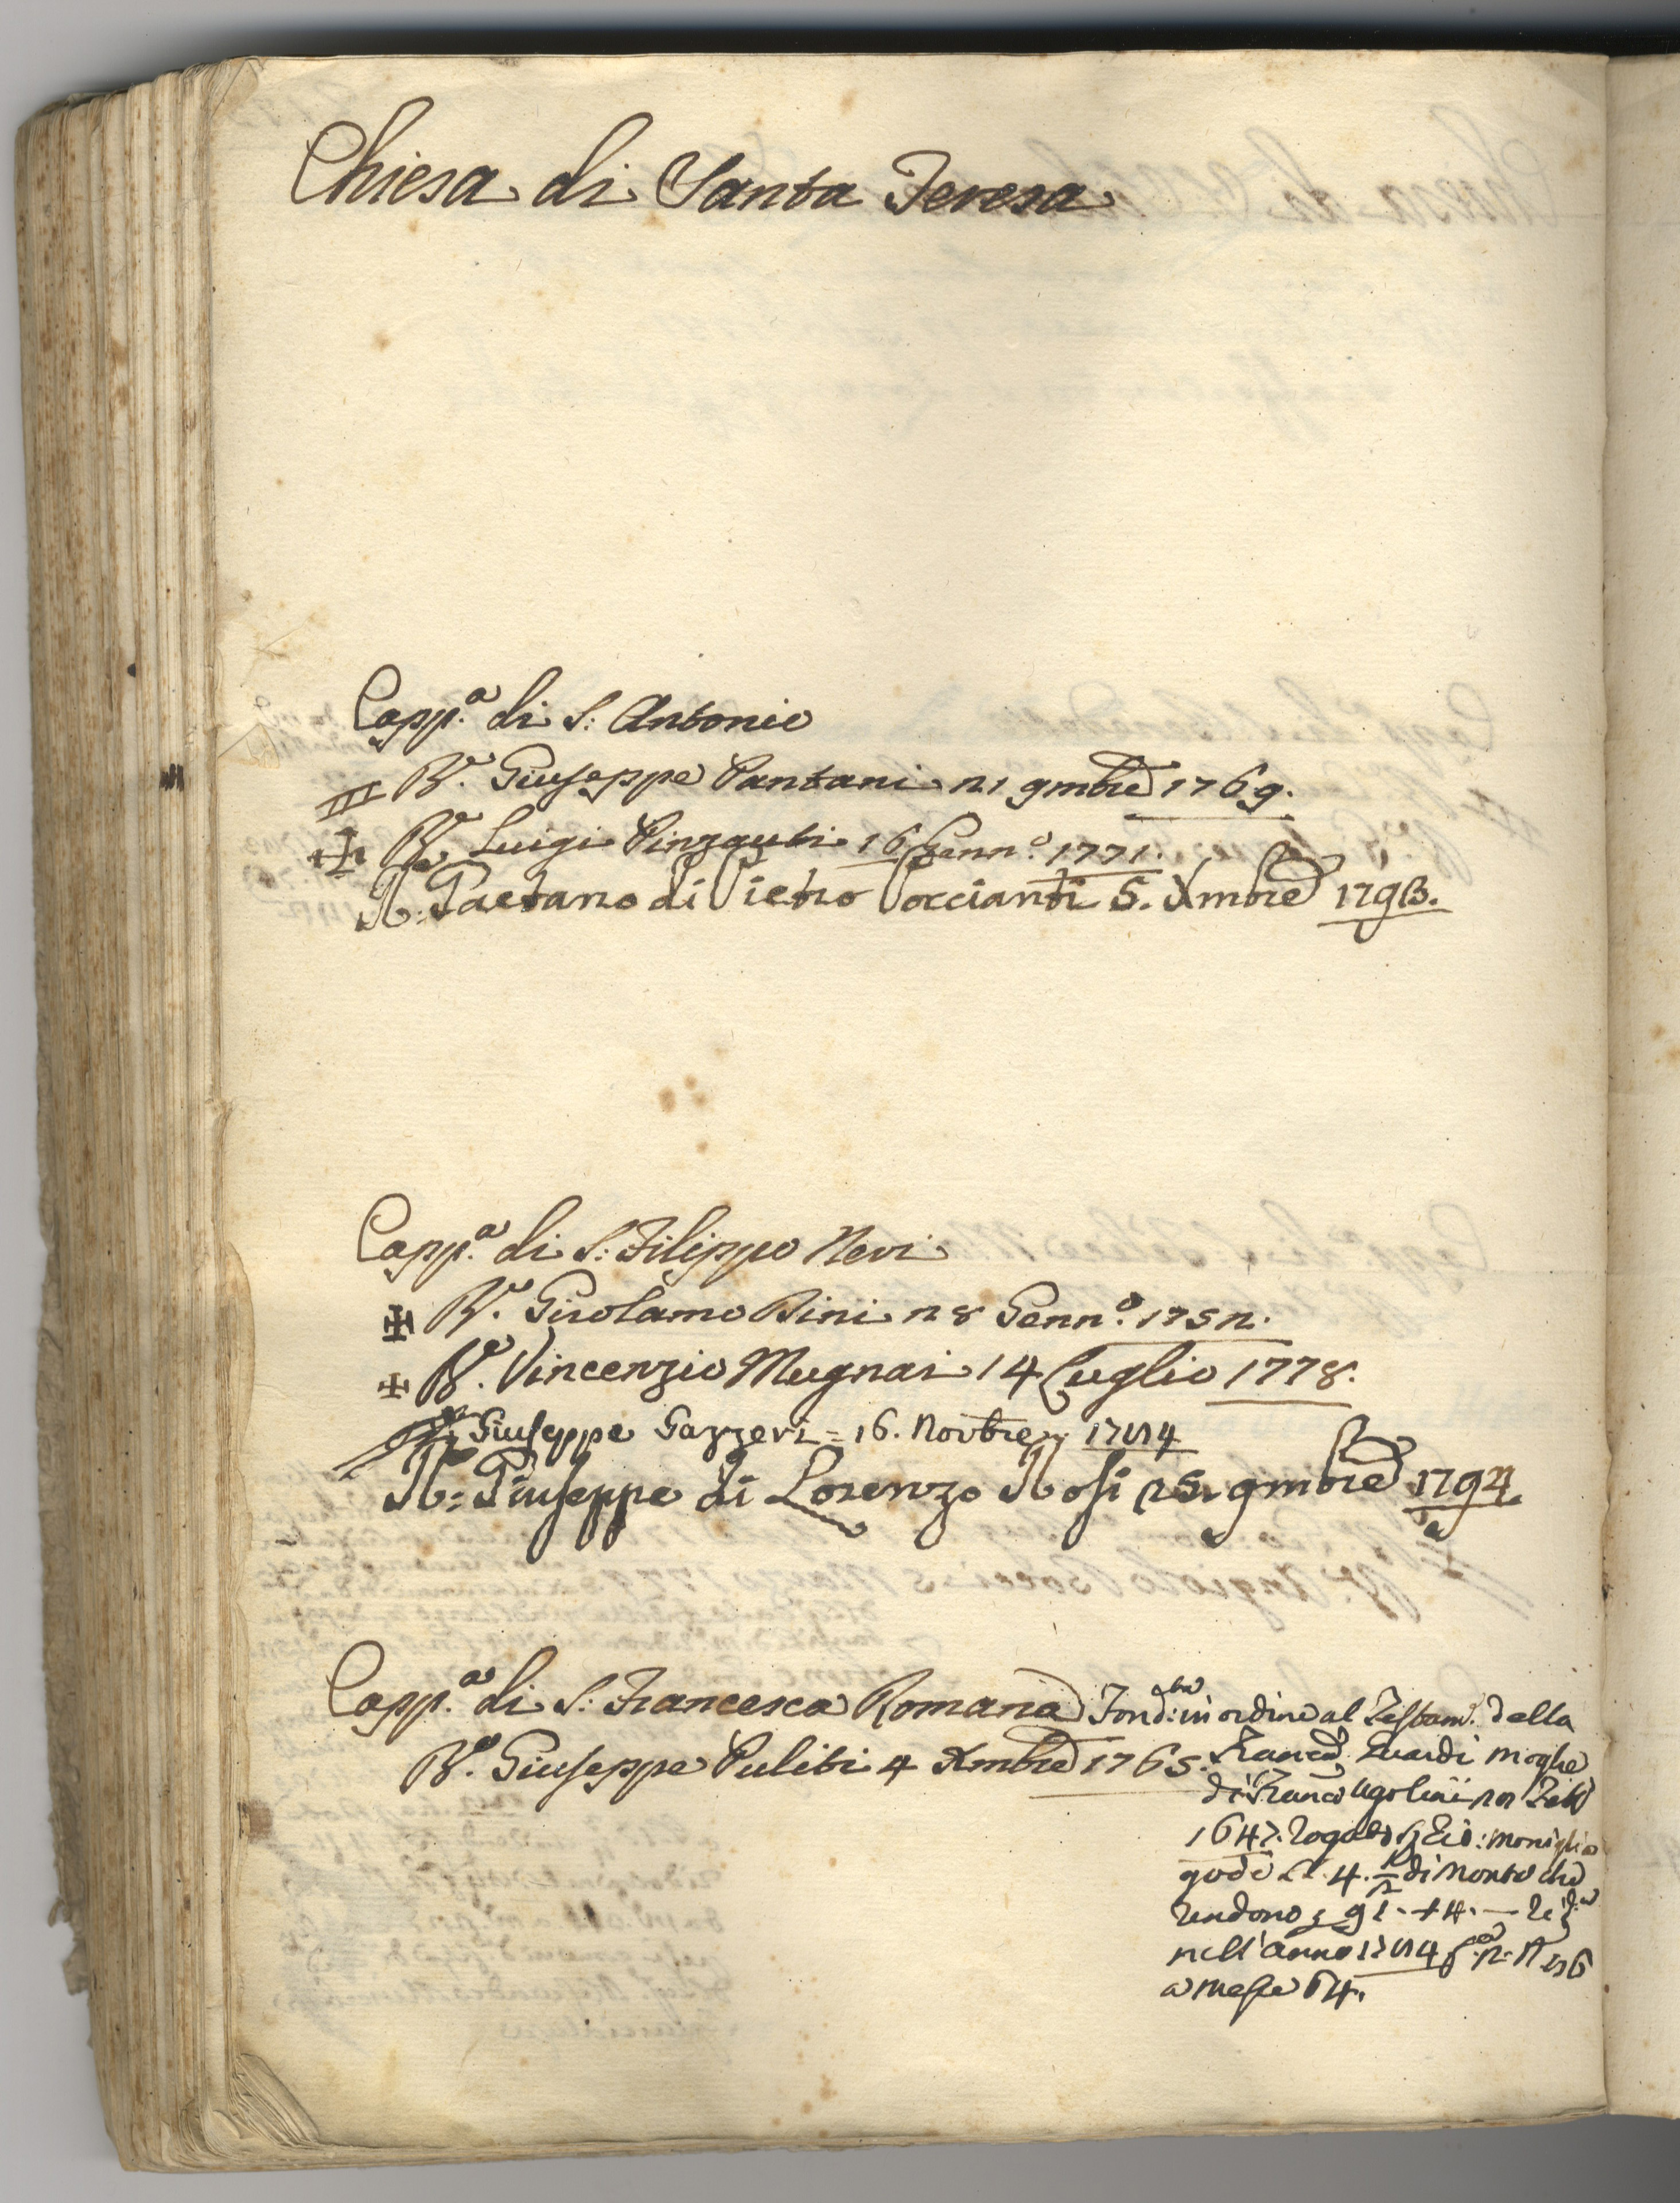 Chiesa di Santa Teresa
Capp.a di S: Antonio
R.e Giuseppe Pantani 21 9mbre 1769.
R.e Luigi Pinzauti 16 Genn.o 1771.
R: Gaetano di Pietro Poccianti 5. Xmbre 1793.
Capp.a di S: Filippo Neri
R.e Girolamo Bini 28 Genn.o 1752.
R.e Vincenzio Mugnai 14 Luglio 1778.
Giuseppe Gazzeri = 16. Novbre 1784
R: Giuseppe di Lorenzo Rosi 25. 9mbre 1794
Capp.a di S: Francesca Romana Fond:ta in ordine al Testam. della
R.e Giuseppe Puliti 4 Xmbre 1765. Moglie
di Ugolini
1647. Rogato
gode 4. di Monte che
rendono
nell'anno 1784
a messe 64.